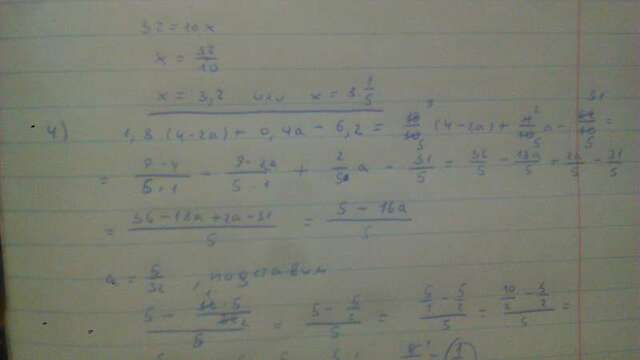 32 = 10x
x = 32/10
x = 3,2 или x = 3 1/5
4) 1,8 (4-2a) + 0,4a - 6,2 = 18/10 9/5 (4-2a) + 4/10 2/5 a - 62/10 31/5 =
= 9·4/5·1 - 9·2a/5·1 + 2/5 a - 31/5 = 36/5 - 18a/5 + 2a/5 - 31/5
= 36-18a+2a-31/5 = 5-16a/5
a = 5/32, подставим
5 - 16·5/32 2/5 = 5 - 5/2/5 = 5/1 - 5/2/5 = 10/2 - 5/2/5 =